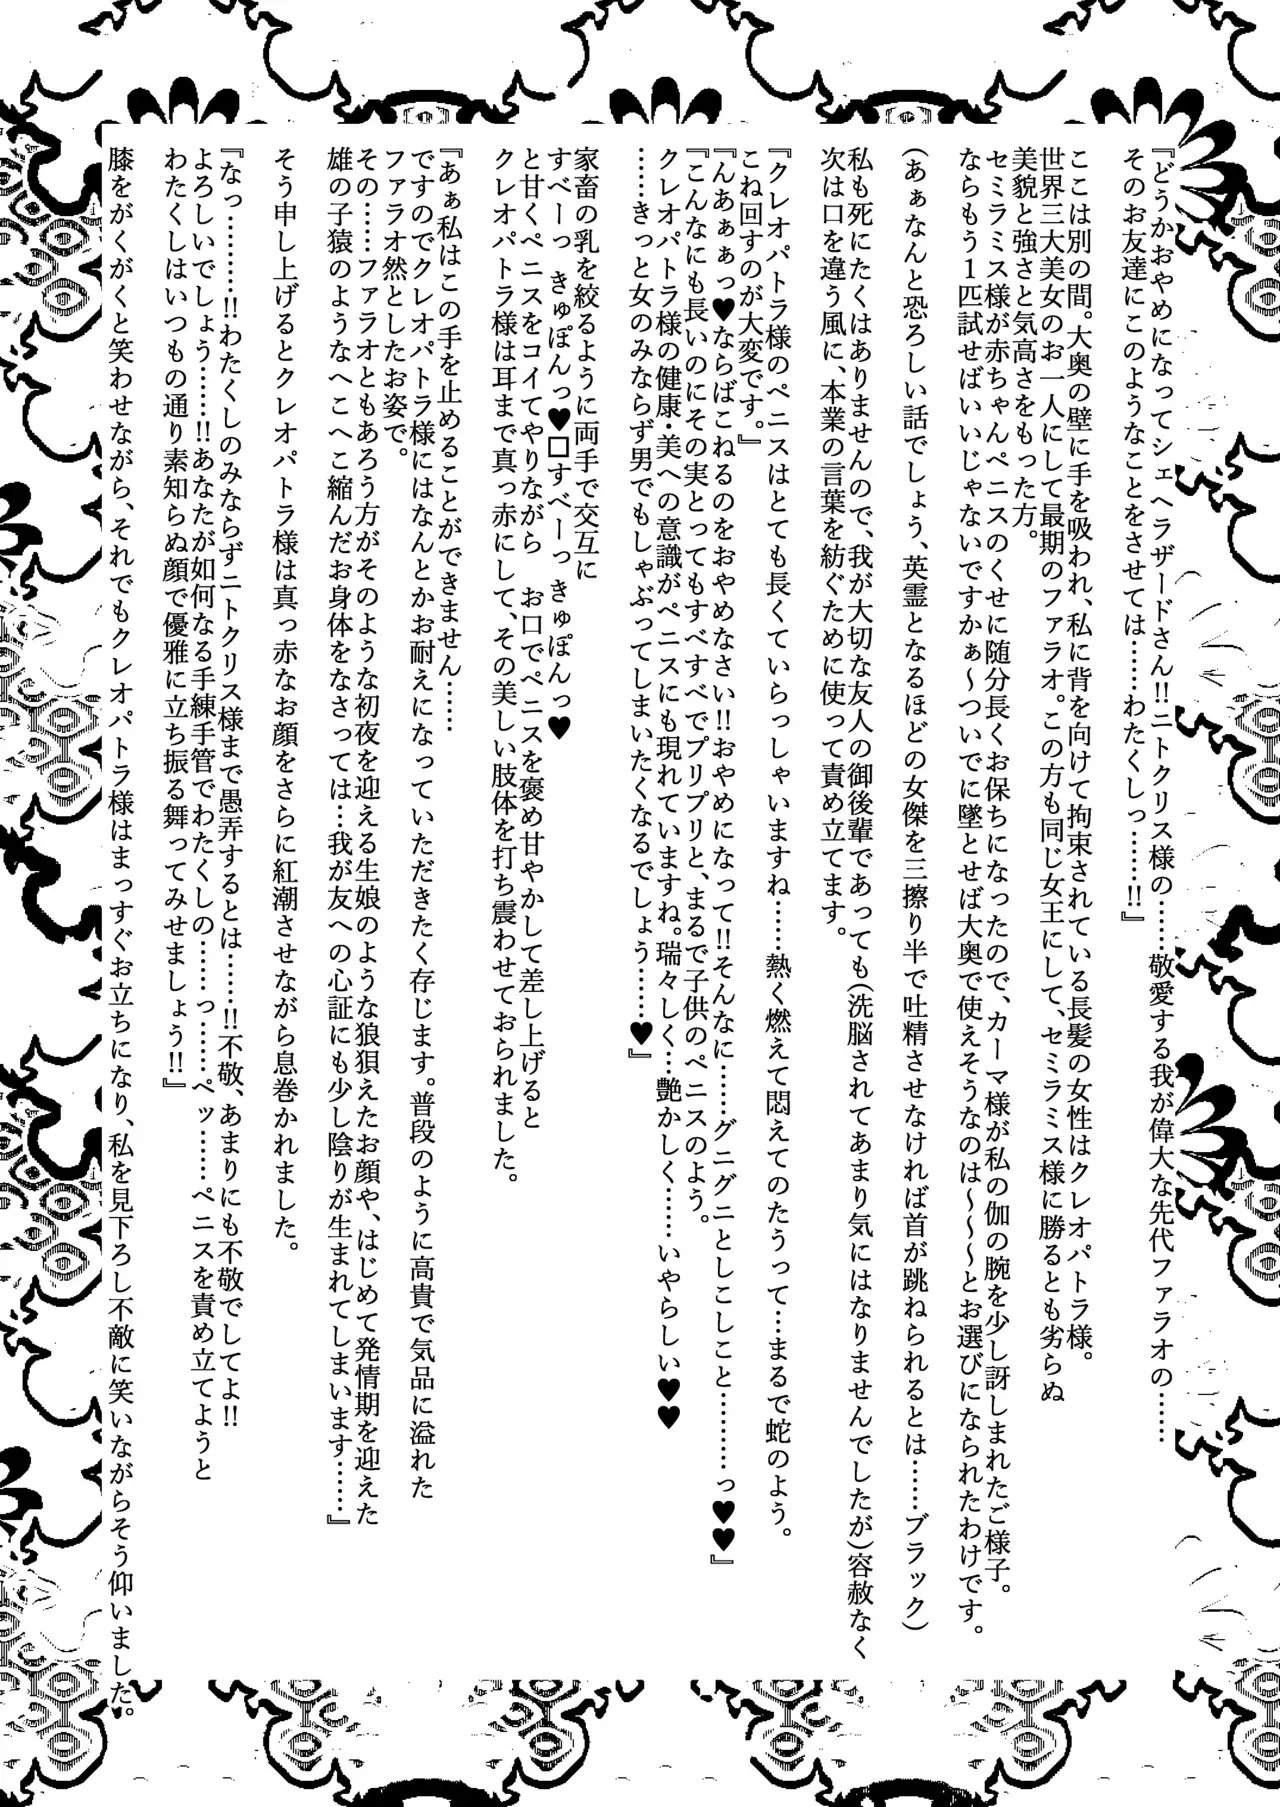 『どうかおやめになってシェヘラザードさん!!ニトクリス様の……敬愛する我が偉大な先代ファラオの……
そのお友達にこのようなことをさせては……わたくしっ……!!』
ここは別の間。大奥の壁に手を吸われ、私に背を向けて拘束されている長髪の女性はクレオパトラ様。
世界三大美女のお一人にして最期のファラオ。この方も同じ女王にして、セミラミス様に勝るとも劣らぬ
美貌と強さと気高さをもった方。
セミラミス様が赤ちゃんペニスのくせに随分長くお保ちになったので、カーマ様が私の伽の腕を少し訝しまれたご様子。
ならもう1匹試せばいいじゃないですかぁ〜ついでに墜とせば大奥で使えそうなのは〜〜〜とお選びになられたわけです。
(あぁなんと恐ろしい話でしょう、英霊となるほどの女傑を三擦り半で吐精させなければ首が跳ねられるとは……ブラック)
私も死にたくはありませんので、我が大切な友人の御後輩であっても(洗脳されてあまり気にはなりませんでしたが)容赦なく
次は口を違う風に、本業の言葉を紡ぐために使って責め立てます。
『クレオパトラ様のペニスはとても長くていらっしゃいますね……熱く燃えて悶えてのたうって…まるで蛇のよう。
こね回すのが大変です。』
『んあぁぁっ♥ならばこねるのをおやめなさい!!おやめになって!!そんなに……グニグニとしこしこと………っ♥♥』
『こんなにも長いのにその実とってもすべすべでプリプリと、まるで子供のペニスのよう。
クレオパトラ様の健康・美への意識がペニスにも現れていますね。瑞々しく…艶かしく……いやらしい♥♥
……きっと女のみならず男でもしゃぶってしまいたくなるでしょう……♥』
家畜の乳を絞るように両手で交互に
すべーっ きゅぽんっ♥□すべーっ きゅぽんっ♥
と甘くペニスをコイてやりながら お口でペニスを褒め甘やかして差し上げると
クレオパトラ様は耳まで真っ赤にして、その美しい肢体を打ち震わせておられました。
『あぁ私はこの手を止めることができません……
ですのでクレオパトラ様にはなんとかお耐えになっていただきたく存じます。普段のように高貴で気品に溢れた
ファラオ然としたお姿で。
その……ファラオともあろう方がそのような初夜を迎える生娘のような狼狽えたお顔や、はじめて発情期を迎えた
雄の子猿のようなへこへこ縮んだお身体をなさっては…我が友への心証にも少し陰りが生まれてしまいます……』
そう申し上げるとクレオパトラ様は真っ赤なお顔をさらに紅潮させながら息巻かれました。
『なっ………!!わたくしのみならずニトクリス様まで愚弄するとは……!!不敬、あまりにも不敬でしてよ!!
よろしいでしょう……!!あなたが如何なる手練手管でわたくしの……っ……ペッ……ペニスを責め立てようと
わたくしはいつもの通り素知らぬ顔で優雅に立ち振る舞ってみせましょう!!』
膝をがくがくと笑わせながら、それでもクレオパトラ様はまっすぐお立ちになり、私を見下ろし不敵に笑いながらそう仰いました。